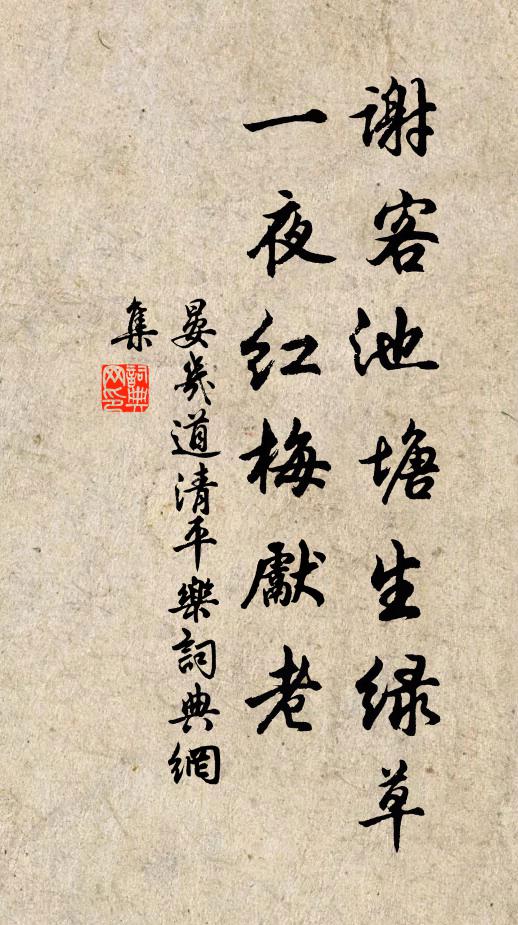 谢客池塘生绿草
一夜红梅獻老
晏幾道清平樂詞典網
集
詞典网印